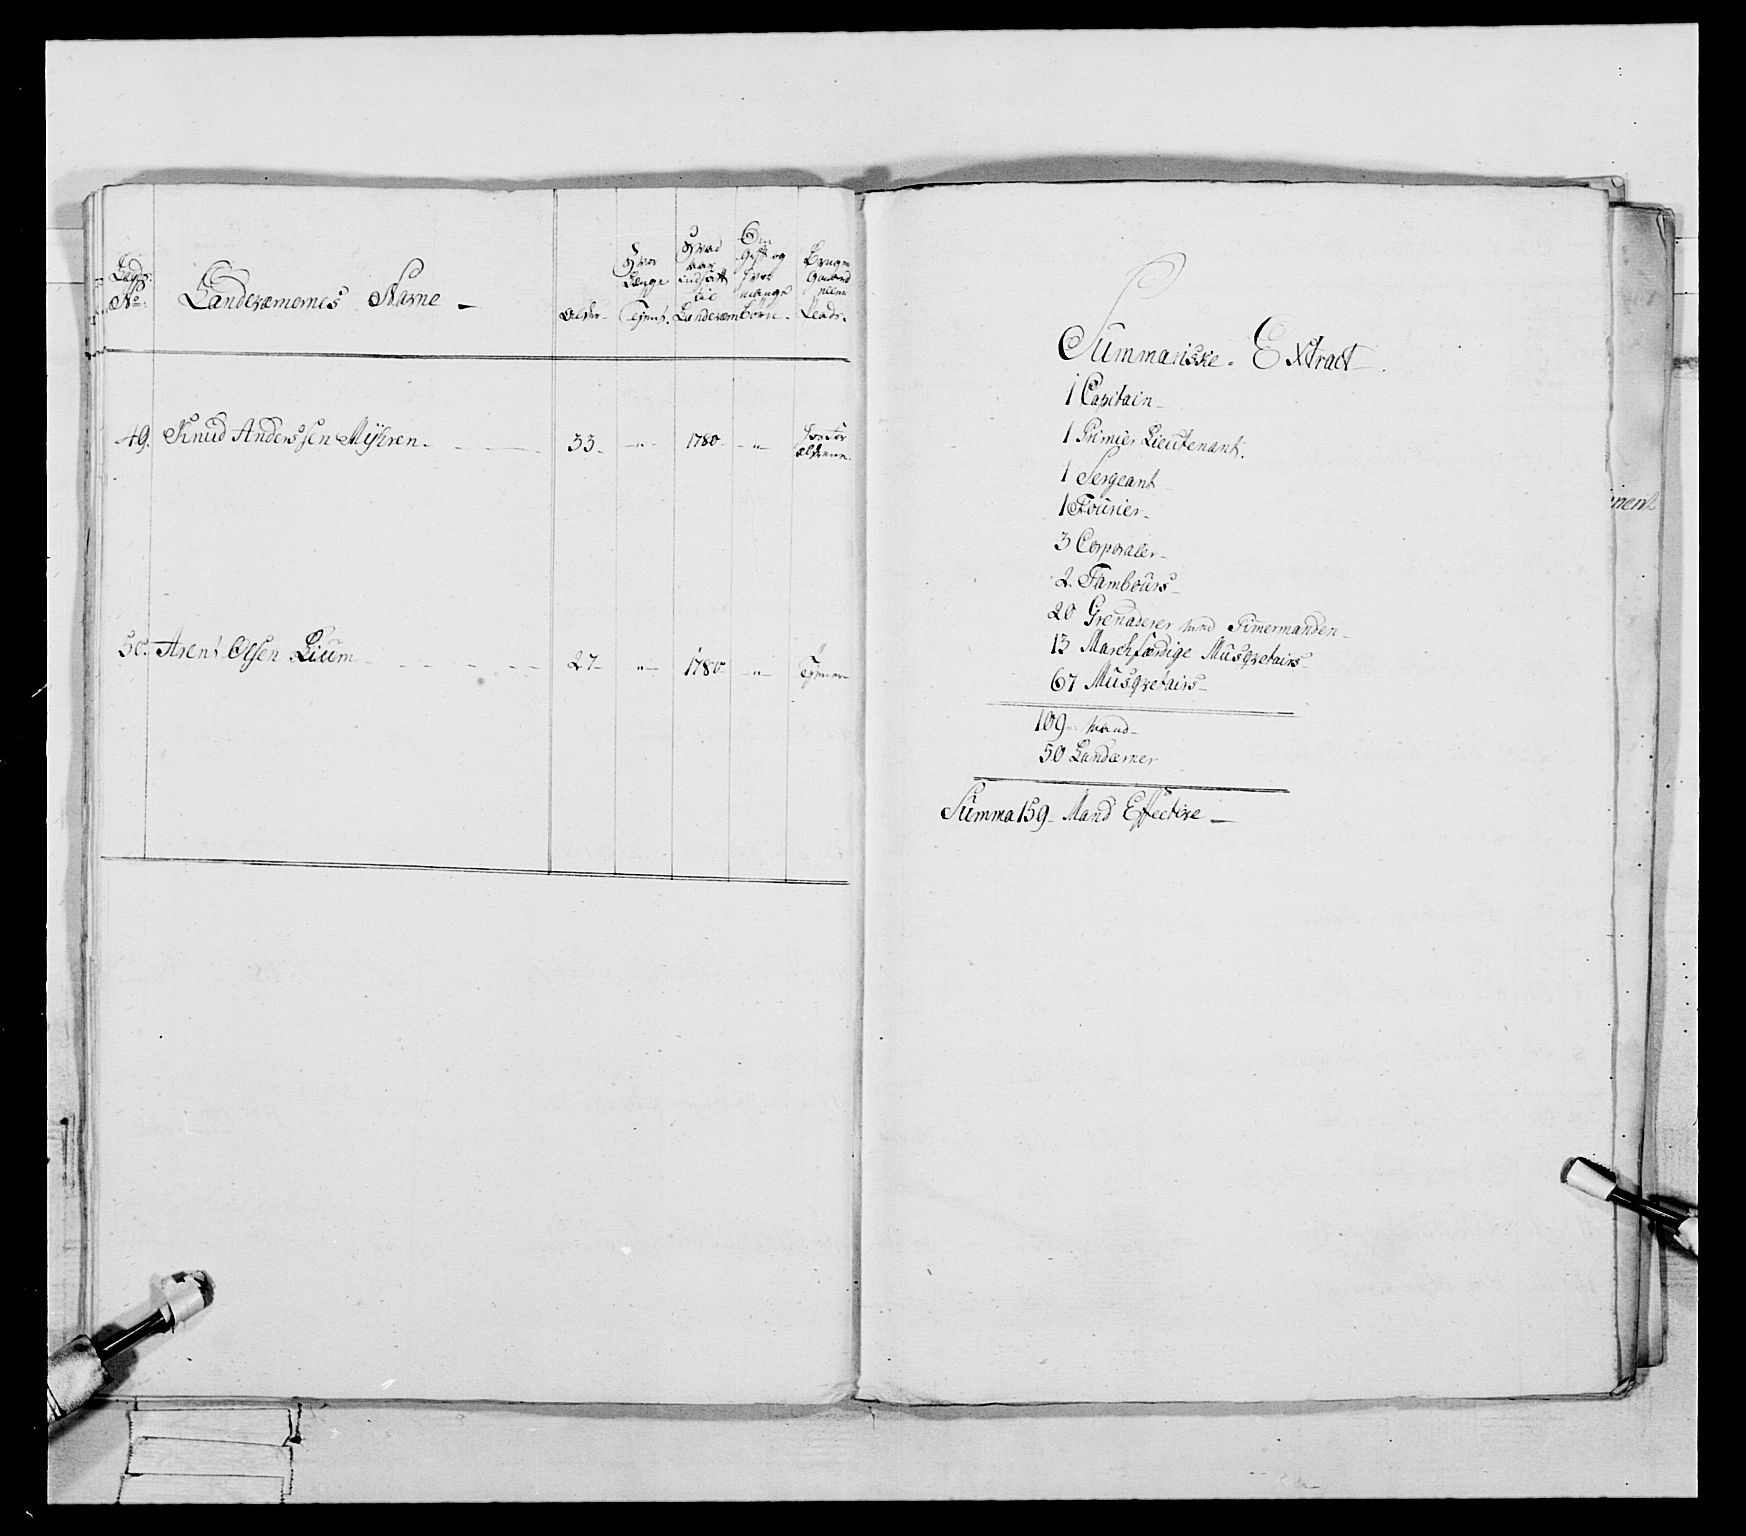 Lægs No.
Landeværnernes Navne
Alder
Hvor Længe Tjent.
Hvad aar indsatt til Landeværn
Om Gift og hvor mange børn.
Bruger Gaard eller Leads.
49. Knud Anderssen Myhren 33 - " - 1780 - " - hos For ældrene
50. Arent Olsen Lium 27 - " - 1780 - " - Tjener
Summariske Extract
1 Capitain
1 Primier Lieutenant.
1 Sergeant
1 Fourier
3 Corporaler
2 Tambours
20 Grenaderer und Timermanden
13 Marchfærdige Musqvetairs
67 Musqvetairs
109 mand
50 Landværner
Summa 159 Mand Effective